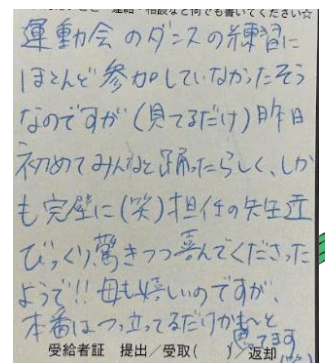 連絡・相談など何でも書いてください☆
運動会のダンスの練習に
ほとんど参加していなかったそう
なのですが(見てるだけ)昨日
初めてみんなと踊ったらしく、しか
も完璧に(笑)担任の先生達
びっくり、驚きつつ喜んでくださった
ようで!!母も嬉しいのですが、
本番はつっ立ってるだけかも〜と
思ってます
受給者証 提出/受取( )返却